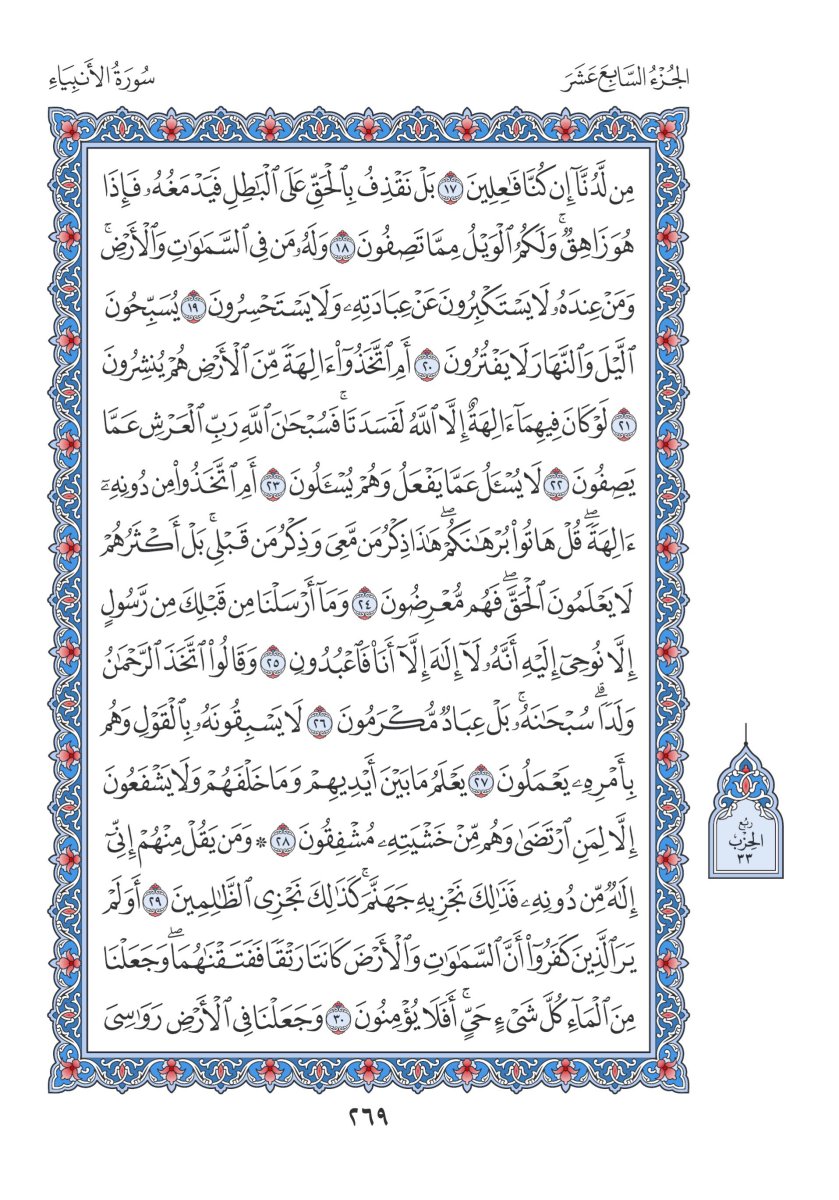 الجُزْءُ السَّابِعَ عَشَرَ
سُورَةُ الأَنبِيَاءِ
مِن لَّدُنَّآ إِن كُنَّا فَـٰعِلِينَ ١٧ بَلْ نَقْذِفُ بِٱلْحَقِّ عَلَى ٱلْبَـٰطِلِ فَيَدْمَغُهُۥ فَإِذَا
هُوَ زَاهِقٌۭ ۚ وَلَكُمُ ٱلْوَيْلُ مِمَّا تَصِفُونَ ١٨ وَلَهُۥ مَن فِى ٱلسَّمَـٰوَٰتِ وَٱلْأَرْضِ ۚ
وَمَنْ عِندَهُۥ لَا يَسْتَكْبِرُونَ عَنْ عِبَادَتِهِۦ وَلَا يَسْتَحْسِرُونَ ١٩ يُسَبِّحُونَ
ٱلَّيْلَ وَٱلنَّهَارَ لَا يَفْتُرُونَ ٢٠ أَمِ ٱتَّخَذُوٓا۟ ءَالِهَةًۭ مِّنَ ٱلْأَرْضِ هُمْ يُنشِرُونَ
٢١ لَوْ كَانَ فِيهِمَآ ءَالِهَةٌ إِلَّا ٱللَّهُ لَفَسَدَتَا ۚ فَسُبْحَـٰنَ ٱللَّهِ رَبِّ ٱلْعَرْشِ عَمَّا
يَصِفُونَ ٢٢ لَا يُسْـَٔلُ عَمَّا يَفْعَلُ وَهُمْ يُسْـَٔلُونَ ٢٣ أَمِ ٱتَّخَذُوا۟ مِن دُونِهِۦٓ
ءَالِهَةًۭ ۖ قُلْ هَاتُوا۟ بُرْهَـٰنَكُمْ ۖ هَـٰذَا ذِكْرُ مَن مَّعِىَ وَذِكْرُ مَن قَبْلِى ۗ بَلْ أَكْثَرُهُمْ
لَا يَعْلَمُونَ ٱلْحَقَّ ۖ فَهُم مُّعْرِضُونَ ٢٤ وَمَآ أَرْسَلْنَا مِن قَبْلِكَ مِن رَّسُولٍ
إِلَّا نُوحِىٓ إِلَيْهِ أَنَّهُۥ لَآ إِلَـٰهَ إِلَّآ أَنَا۠ فَٱعْبُدُونِ ٢٥ وَقَالُوا۟ ٱتَّخَذَ ٱلرَّحْمَـٰنُ
وَلَدًۭا ۗ سُبْحَـٰنَهُۥ ۚ بَلْ عِبَادٌۭ مُّكْرَمُونَ ٢٦ لَا يَسْبِقُونَهُۥ بِٱلْقَوْلِ وَهُم
بِأَمْرِهِۦ يَعْمَلُونَ ٢٧ يَعْلَمُ مَا بَيْنَ أَيْدِيهِمْ وَمَا خَلْفَهُمْ وَلَا يَشْفَعُونَ
إِلَّا لِمَنِ ٱرْتَضَىٰ وَهُم مِّنْ خَشْيَتِهِۦ مُشْفِقُونَ ٢٨ ۞ وَمَن يَقُلْ مِنْهُمْ إِنِّىٓ
إِلَـٰهٌۭ مِّن دُونِهِۦ فَذَٰلِكَ نَجْزِيهِ جَهَنَّمَ ۚ كَذَٰلِكَ نَجْزِى ٱلظَّـٰلِمِينَ ٢٩ أَوَلَمْ
يَرَ ٱلَّذِينَ كَفَرُوٓا۟ أَنَّ ٱلسَّمَـٰوَٰتِ وَٱلْأَرْضَ كَانَتَا رَتْقًۭا فَفَتَقْنَـٰهُمَا ۖ وَجَعَلْنَا
مِنَ ٱلْمَآءِ كُلَّ شَىْءٍ حَىٍّ ۖ أَفَلَا يُؤْمِنُونَ ٣٠ وَجَعَلْنَا فِى ٱلْأَرْضِ رَوَٰسِىَ
رُبْعُ
الحِزْب
٣٣
٢٦٩